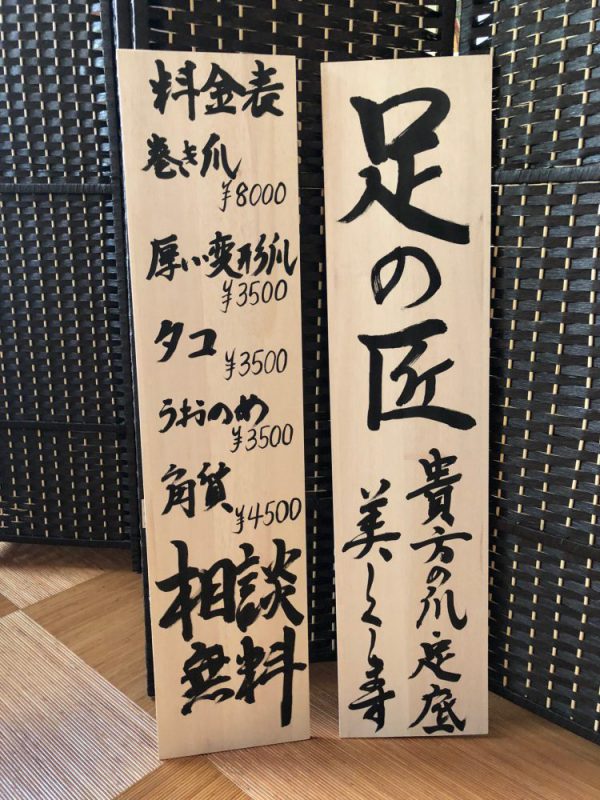 料金表
巻き爪
¥8000
厚い変形爪
¥3500
タコ
¥3500
うおのめ
¥3500
角質
¥4500
相談
無料
足の匠
貴方の爪・足底
美しくし寿